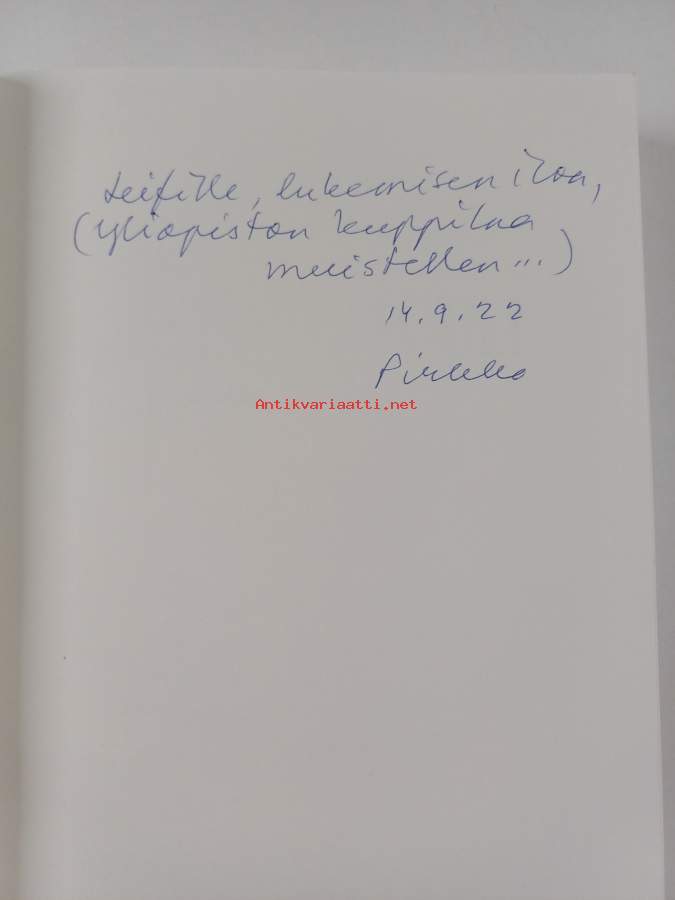 Leifille, lukemisen iloa,
(Yliopiston kuppilaa
muistellen...)
14.9.22
Pirkko
Antikvariaatti.net